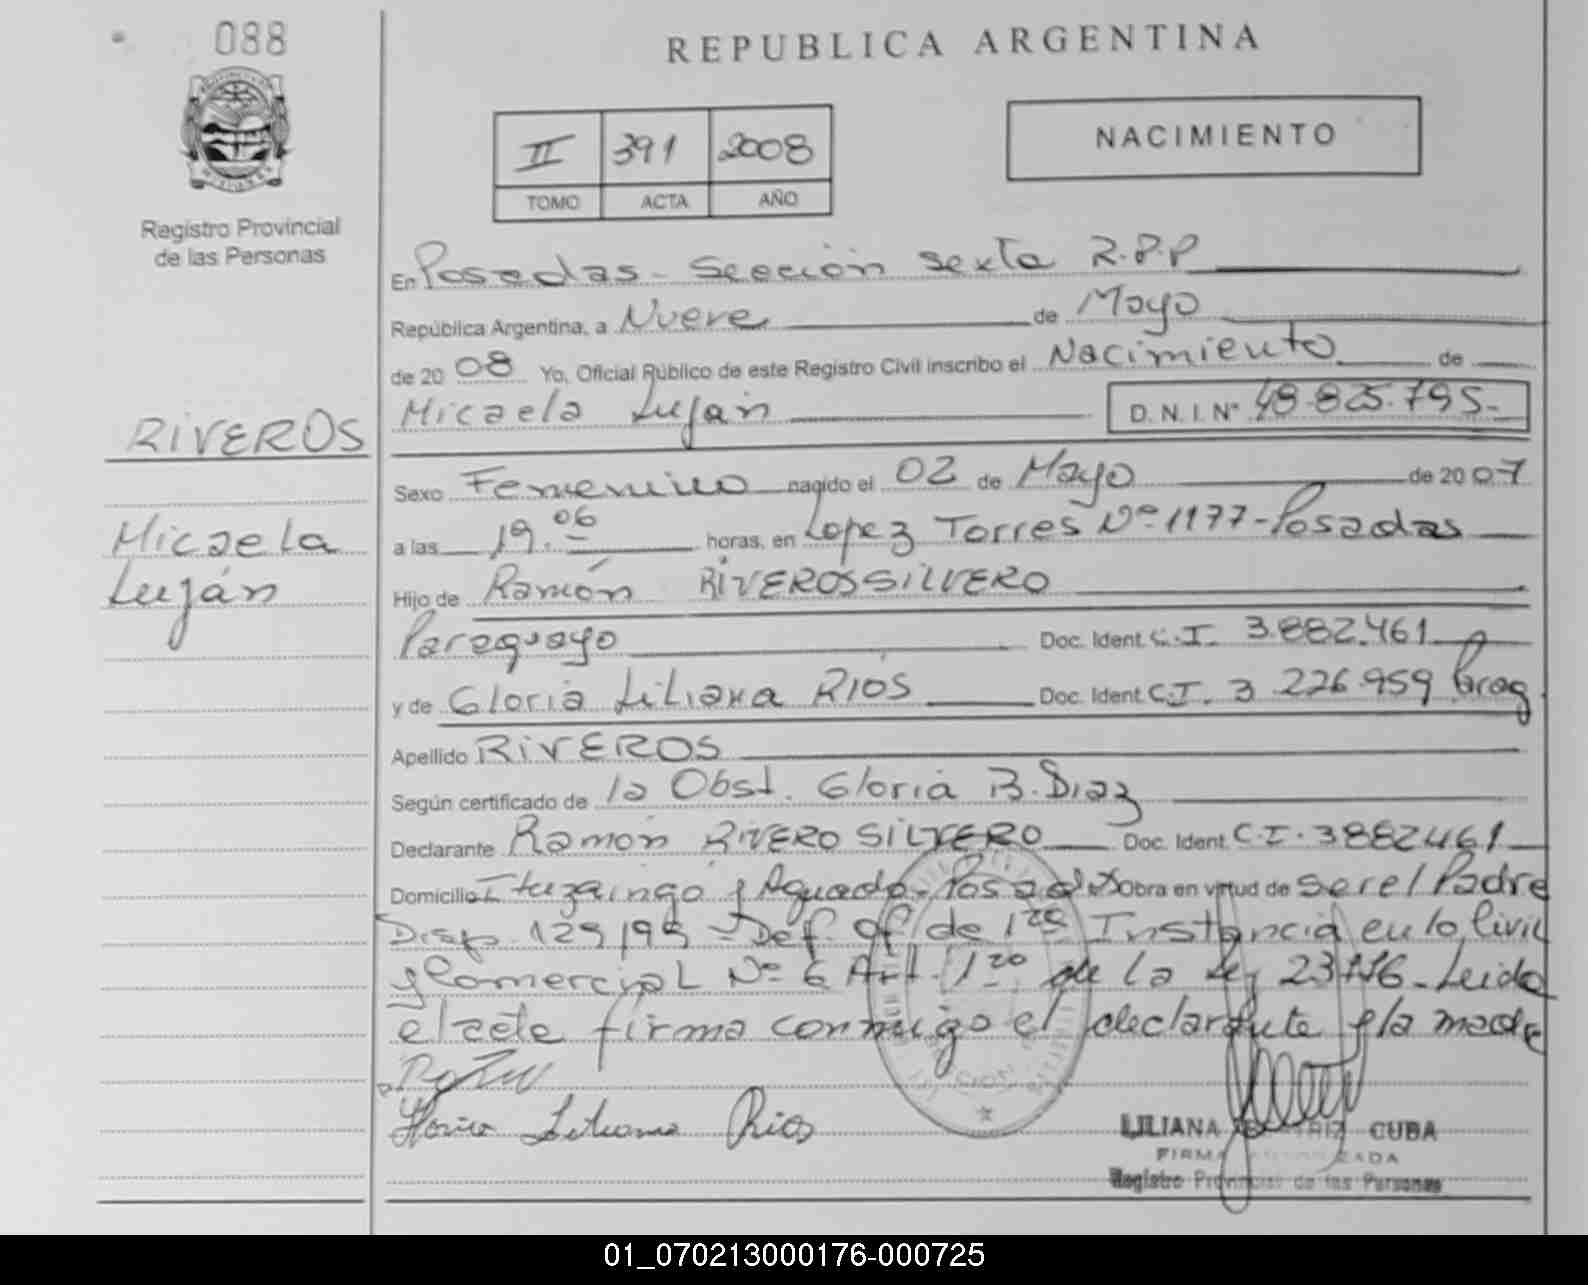 088
REPUBLICA ARGENTINA
II 391 2008
TOMO ACTA AÑO
NACIMIENTO
Registro Provincial
de las Personas
En Posadas - Sección Sexta R.P.P
República Argentina, a Nueve de Mayo
de 2008 Yo, Oficial Público de este Registro Civil inscribo el Nacimiento de
Micaela Luján D.N.I. N° 48.825.795-
RIVEROS
Sexo Femenino nacido el 02 de Mayo de 2007
Micaela
a las 19.06 horas, en Lopez Torres N° 1177-Posadas
Luján
Hijo de Ramón RIVEROS SILVERO
Paraguayo Doc. Ident. C.I. 3.882.461
y de Gloria Liliana RIOS Doc. Ident. C.I. 3.226.959 Parag
Apellido RIVEROS
Según certificado de la Obst. Gloria B. Diaz
Declarante Ramón RIVERO SILVERO Doc. Ident. C.I. 3882461
Domicilio Ituzaingó y Aguado-Posadas Obra en virtud de ser el Padre
Disp. 129/95 - Def. Of. de 1ra Instancia en lo Civil
y Comercial N° 6 Art. 1ro de la Ley 23776 - Leida
el acta firma conmigo el declarante y la madre
Liliana Rios
LILIANA CUBA
FIRMA
Registro Provincial de las Personas
01_070213000176-000725